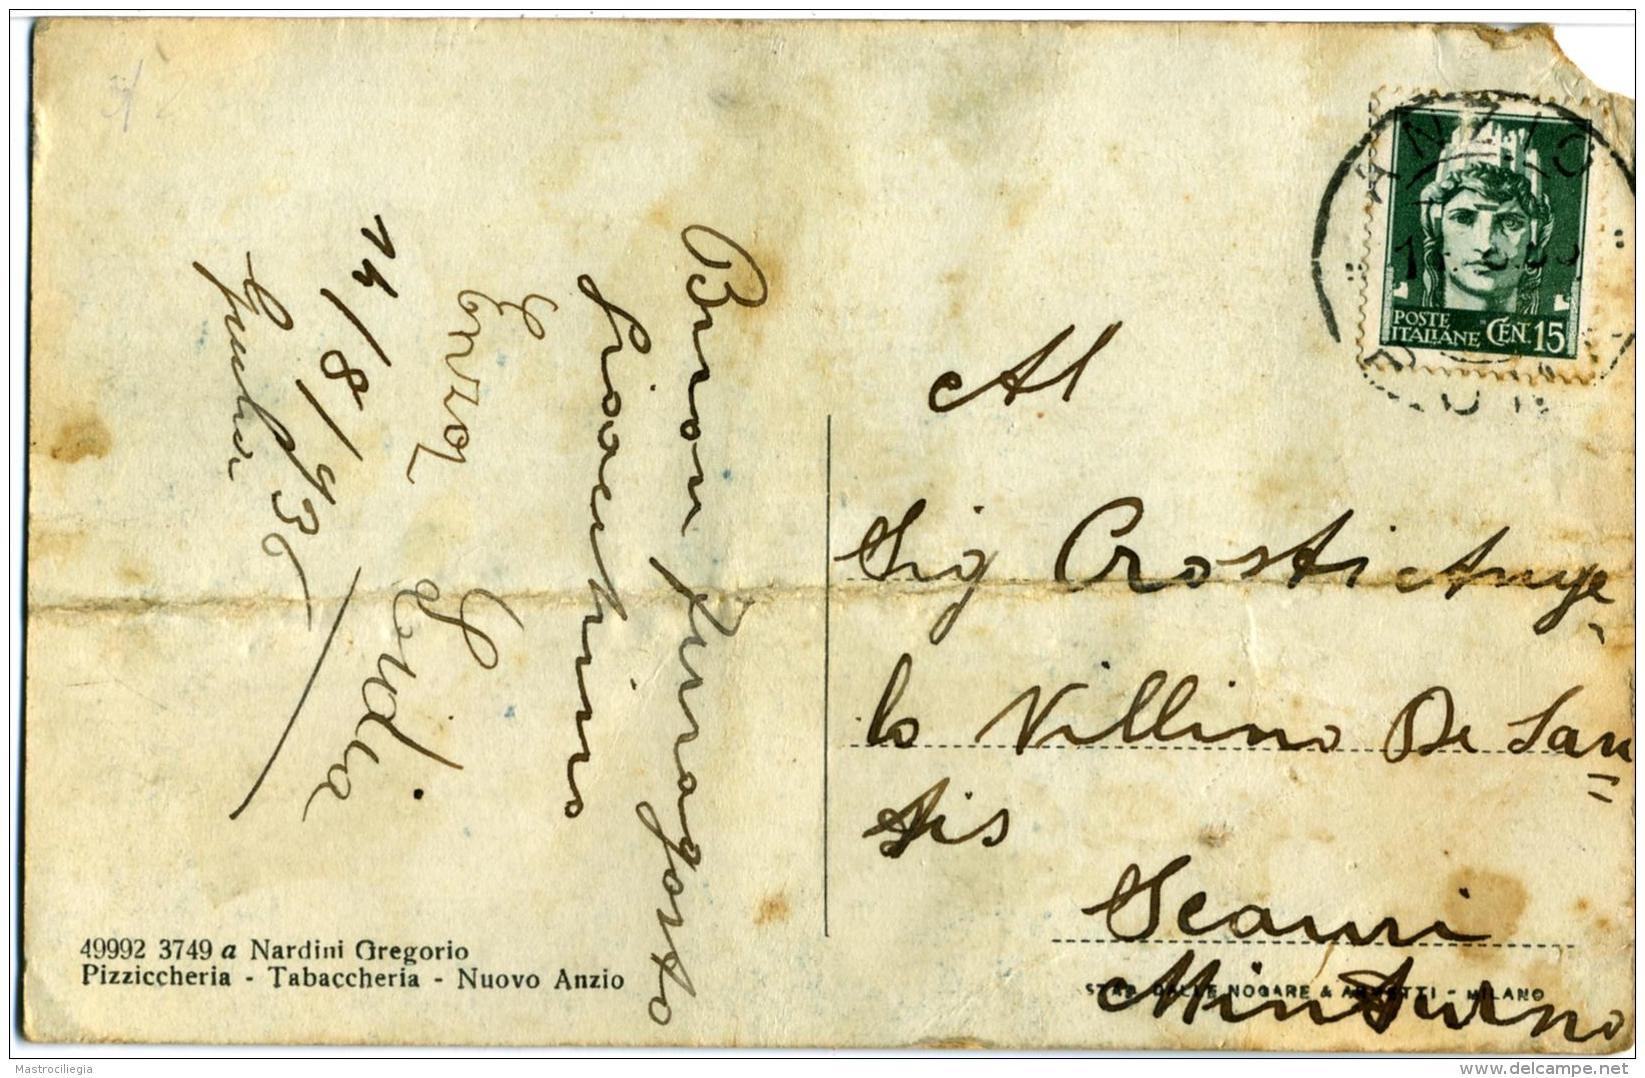 Buon ferragosto
Gioacchino
Enzo
Lidia
14/8/936
Giulia
49992 3749 a Nardini Gregorio
Pizziccheria - Tabaccheria - Nuovo Anzio
ANZIO
POSTE
ITALIANE CEN. 15
Al
Sig Crosti Ange-
lo Villino De San=
tis
Scauri
STAB. DALLE NOGARE & ARMETTI - MILANO
Minturno
Mastrociliegia
delcampe.net